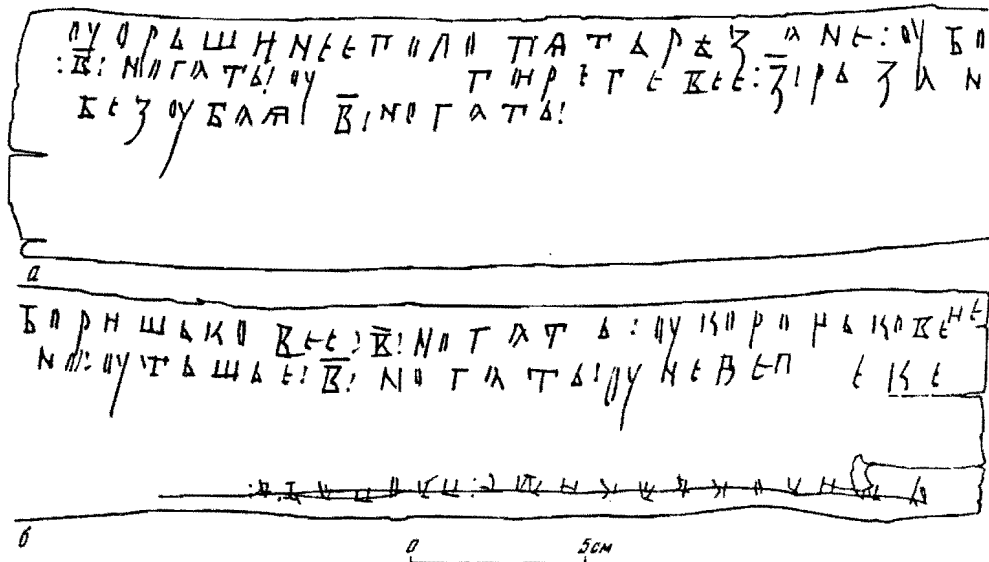 оу орьшинееполо патьрѣзане:оу бо
:в҃:ногать:оу гюргевее:з҃:рѣзан
безоубаѧ в҃:ногать:
а
боришьковее:в҃:ногать:оукоромькове не
но:оутьшье:в҃:ногать:оу невеп еке
б
0 5см